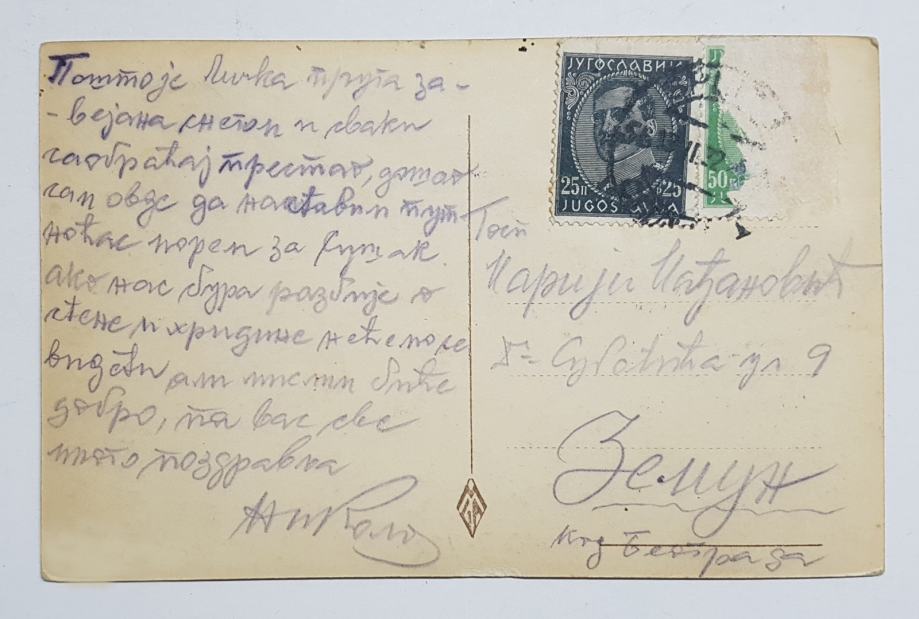 Поштоје Личка пруга за-
-вејана снегом и сваки
саобраћај престао, дошао
сам овде да наставим пут-
ноћас морем за Сушак
ако нас бура разбије о
стене и хридине нећемо се
видети али мислим биће
добро, па вас све
много поздравља
Никола
ЈУГОСЛАВИЈА
25п 25
JUGOSLAVIJA
50
Госп
Марији Мађановић
Др Суботића ул 9
Земун
код Београда